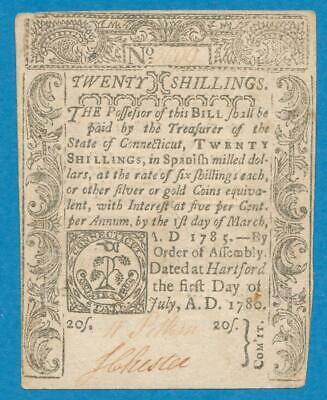 No
TWENTY SHILLINGS.
THE Possessor of this BILL shall be
paid by the Treasurer of the
State of Connecticut, TWENTY
SHILLINGS, in Spanish milled dol-
lars, at the rate of six shillings each,
or other silver or gold Coins equiva-
lent, with Interest at five per Cent.
per Annum, by the 1st day of March,
A. D 1785.—By
Order of Assembly.
Dated at Hartford
the first Day of
July, A.D. 1780.
20s. 20s.
COM'TT.